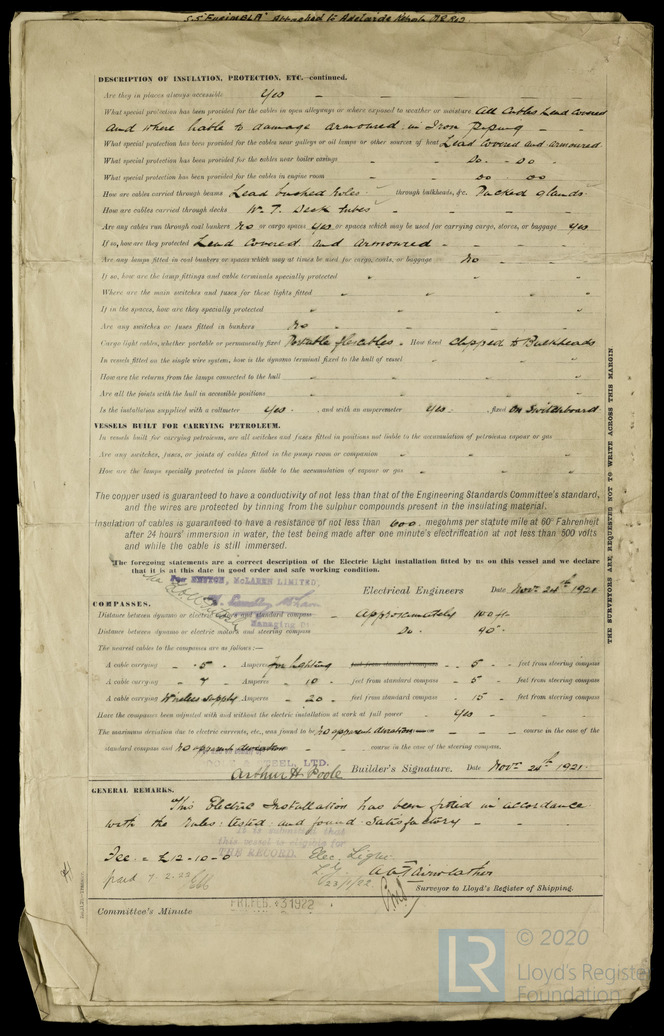 S.S. "Eurimbla" Attached to Adelaide
DESCRIPTION OF INSULATION, PROTECTION, ETC.—continued.
Are they in places always accessible Yes
What special protection has been provided for the cables in open alleyways or where exposed to weather or moisture All Cables Lead Covered
and where liable to damage armoured in Iron Piping
What special protection has been provided for the cables near galleys or oil lamps or other sources of heat Lead Covered and armoured
What special protection has been provided for the cables near boiler casings Do. Do
What special protection has been provided for the cables in engine room Do Do
How are cables carried through beams Lead bushed holes through bulkheads, &c. Packed glands
How are cables carried through decks W. T. Deck tubes
Are any cables run through coal bunkers No or cargo spaces Yes or spaces which may be used for carrying cargo, stores, or baggage Yes
If so, how are they protected Lead Covered and Armoured
Are any lamps fitted in coal bunkers or spaces which may at times be used for cargo, coals, or baggage No
If so, how are the lamp fittings and cable terminals specially protected "
Where are the main switches and fuses for these lights fitted "
If in the spaces, how are they specially protected "
Are any switches or fuses fitted in bunkers No
Cargo light cables, whether portable or permanently fixed Portable flexibles How fixed Clipped to Bulkheads
In vessels fitted on the single wire system, how is the dynamo terminal fixed to the hull of vessel "
How are the returns from the lamps connected to the hull "
Are all the joints with the hull in accessible positions "
Is the installation supplied with a voltmeter Yes , and with an amperemeter Yes , fixed On Switchboard
VESSELS BUILT FOR CARRYING PETROLEUM.
In vessels built for carrying petroleum, are all switches and fuses fitted in positions not liable to the accumulation of petroleum vapour or gas
Are any switches, fuses, or joints of cables fitted in the pump room or companion "
How are the lamps specially protected in places liable to the accumulation of vapour or gas "
The copper used is guaranteed to have a conductivity of not less than that of the Engineering Standards Committee's standard,
and the wires are protected by tinning from the sulphur compounds present in the insulating material.
Insulation of cables is guaranteed to have a resistance of not less than 600 megohms per statute mile at 60° Fahrenheit
after 24 hours' immersion in water, the test being made after one minute's electrification at not less than 500 volts
and while the cable is still immersed.
The foregoing statements are a correct description of the Electric Light installation fitted by us on this vessel and we declare
that it is at this date in good order and safe working condition.
McLAREN LIMITED,
Electrical Engineers Date Novr 24th 1921
Managing
COMPASSES.
Distance between dynamo or electric motors and standard compass Approximately 100 ft
Distance between dynamo or electric motors and steering compass Do. 90
The nearest cables to the compasses are as follows:—
A cable carrying .5 Amperes for lighting feet from standard compass 5 feet from steering compass
A cable carrying 7 Amperes 10 feet from standard compass 5 feet from steering compass
A cable carrying Wireless supply Amperes 20 feet from standard compass 15 feet from steering compass
Have the compasses been adjusted with and without the electric installation at work at full power Yes
The maximum deviation due to electric currents, etc., was found to be No apparent deviation course in the case of the
standard compass and No apparent deviation course in the case of the steering compass.
LTD.
Arthur H. Poole Builder's Signature. Date Novr 24th 1921
GENERAL REMARKS.
This Electric Installation has been fitted in accordance
with the Rules: tested and found satisfactory
It is submitted that
this vessel is eligible for
THE RECORD. Elec. Light
Fee = £12-10-0
23/1/22
paid 7.2.22
A. C. Fairweather
Surveyor to Lloyd's Register of Shipping.
Committee's Minute
FRI. FEB. 3 1922
THE SURVEYORS ARE REQUESTED NOT TO WRITE ACROSS THIS MARGIN
LR
© 2020
Lloyd's Register
Foundation